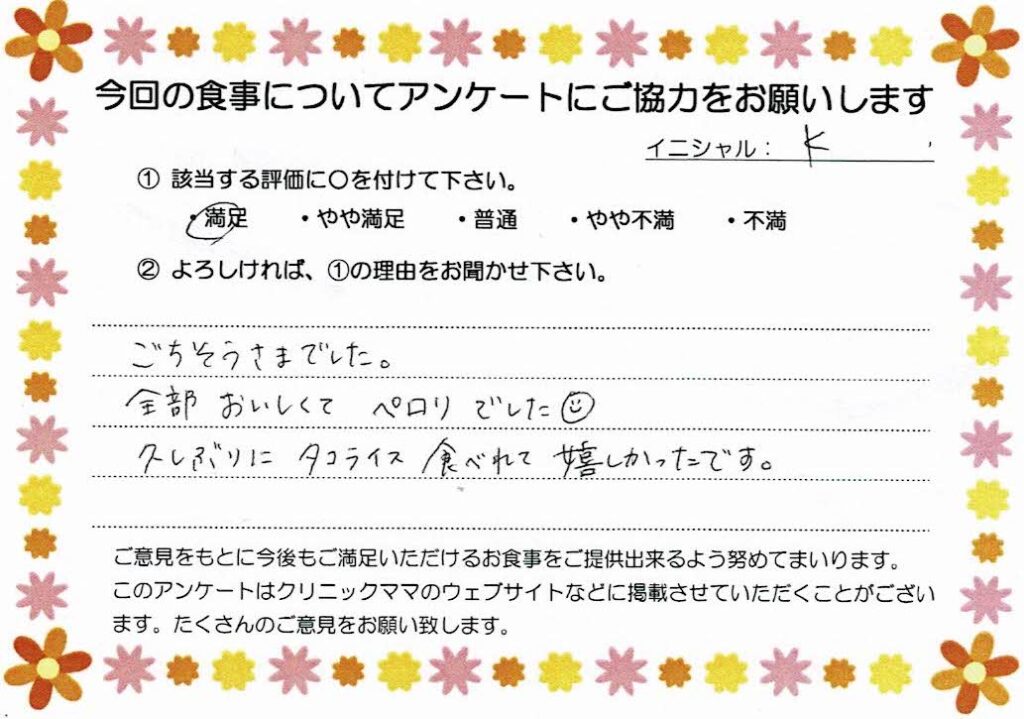 今回の食事についてアンケートにご協力をお願いします
イニシャル： K
① 該当する評価に〇を付けて下さい。
・満足 ・やや満足 ・普通 ・やや不満 ・不満
② よろしければ、①の理由をお聞かせ下さい。
ごちそうさまでした。
全部 おいしくて ペロリ でした☺
久しぶりに タコライス 食べれて 嬉しかったです。
ご意見をもとに今後もご満足いただけるお食事をご提供出来るよう努めてまいります。
このアンケートはクリニックママのウェブサイトなどに掲載させていただくことがござい
ます。たくさんのご意見をお願い致します。